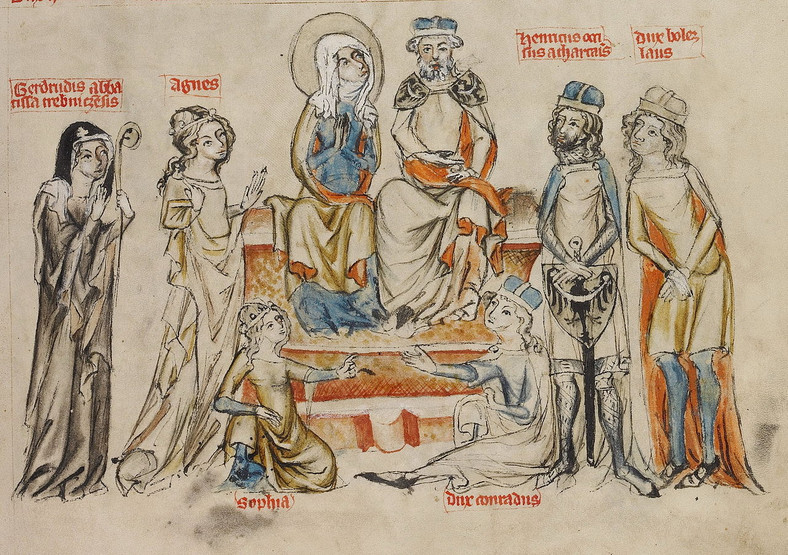 Gerdrudis abba
tissa trebniczesis
Agnes
Henricus occi
sus a thartaris
dux bolez
laus
Sophia
dux conradus